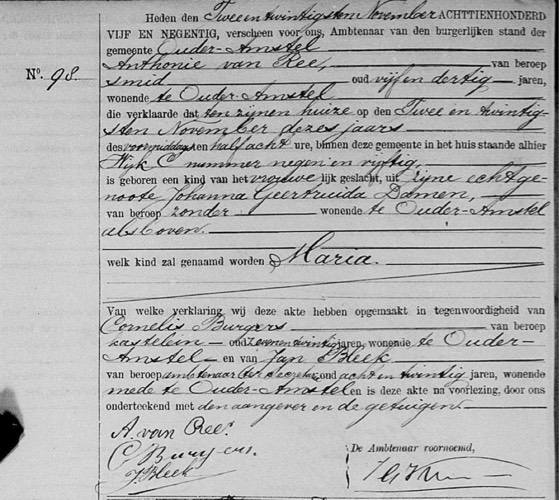 Heden den Twee en twintigsten November ACHTTIENHONDERD
VIJF EN NEGENTIG, verscheen voor ons, Ambtenaar van den burgerlijken stand der
gemeente Ouder-Amstel
Anthonie van Ree, van beroep
Nº. 98. smid oud vijf en dertig jaren,
wonende te Ouder-Amstel
die verklaarde dat ten zijnen huize op den Twee en twintig-
sten November dezes jaars
des voormiddags ten half acht ure, binnen deze gemeente in het huis staande alhier
Wijk C nummer negen en
is geboren een kind van het vrouwelijk geslacht, uit zijne echtge-
noote Johanna Geertruida Damen,
van beroep zonder wonende te Ouder-Amstel
als boven.
welk kind zal genaamd worden Maria.
Van welke verklaring wij deze akte hebben opgemaakt in tegenwoordigheid van
Cornelis Burgers van beroep
kastelein oud jaren, wonende te Ouder-
Amstel en van Jan Bleek
van beroep ambtenaar ter secretarie, oud acht en twintig jaren, wonende
mede te Ouder-Amstel en is deze akte na voorlezing, door ons
onderteekend met den aangever en de getuigen.
A. van Ree.
C Burgers.
J. Bleek
De Ambtenaar voornoemd,